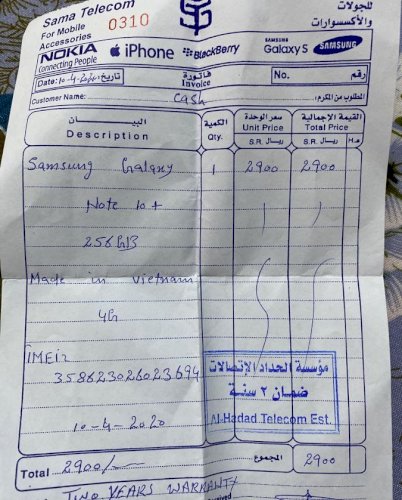 Sama Telecom
For Mobile
Accessories
0310
للجوالات
والأكسسوارات
NOKIA
Connecting People
iPhone
BlackBerry
SAMSUNG
Galaxy S
SAMSUNG
Date: 10-4-2020 تاريخ:
فاتورة
Invoice
No. رقم
Customer Name: Cash المطلوب من المكرم:
البيـــــان
Description
الكمية
Qty.
سعر الوحدة
Unit Price
S.R. ريـال
القيمة الإجمالية
Total Price
S.R. ريـال
هـ.
Samsung Galaxy 1 2900 2900
Note 10+
256 GB
Made in Vietnam
4G
IMEI:
358623026023694
10-4-2020
مؤسسة الحداد الاتصالات
ضمان ٢ سنة
Al-Hadad Telecom Est.
Total 2900/- المجموع 2900
TWO YEARS WARRANTY